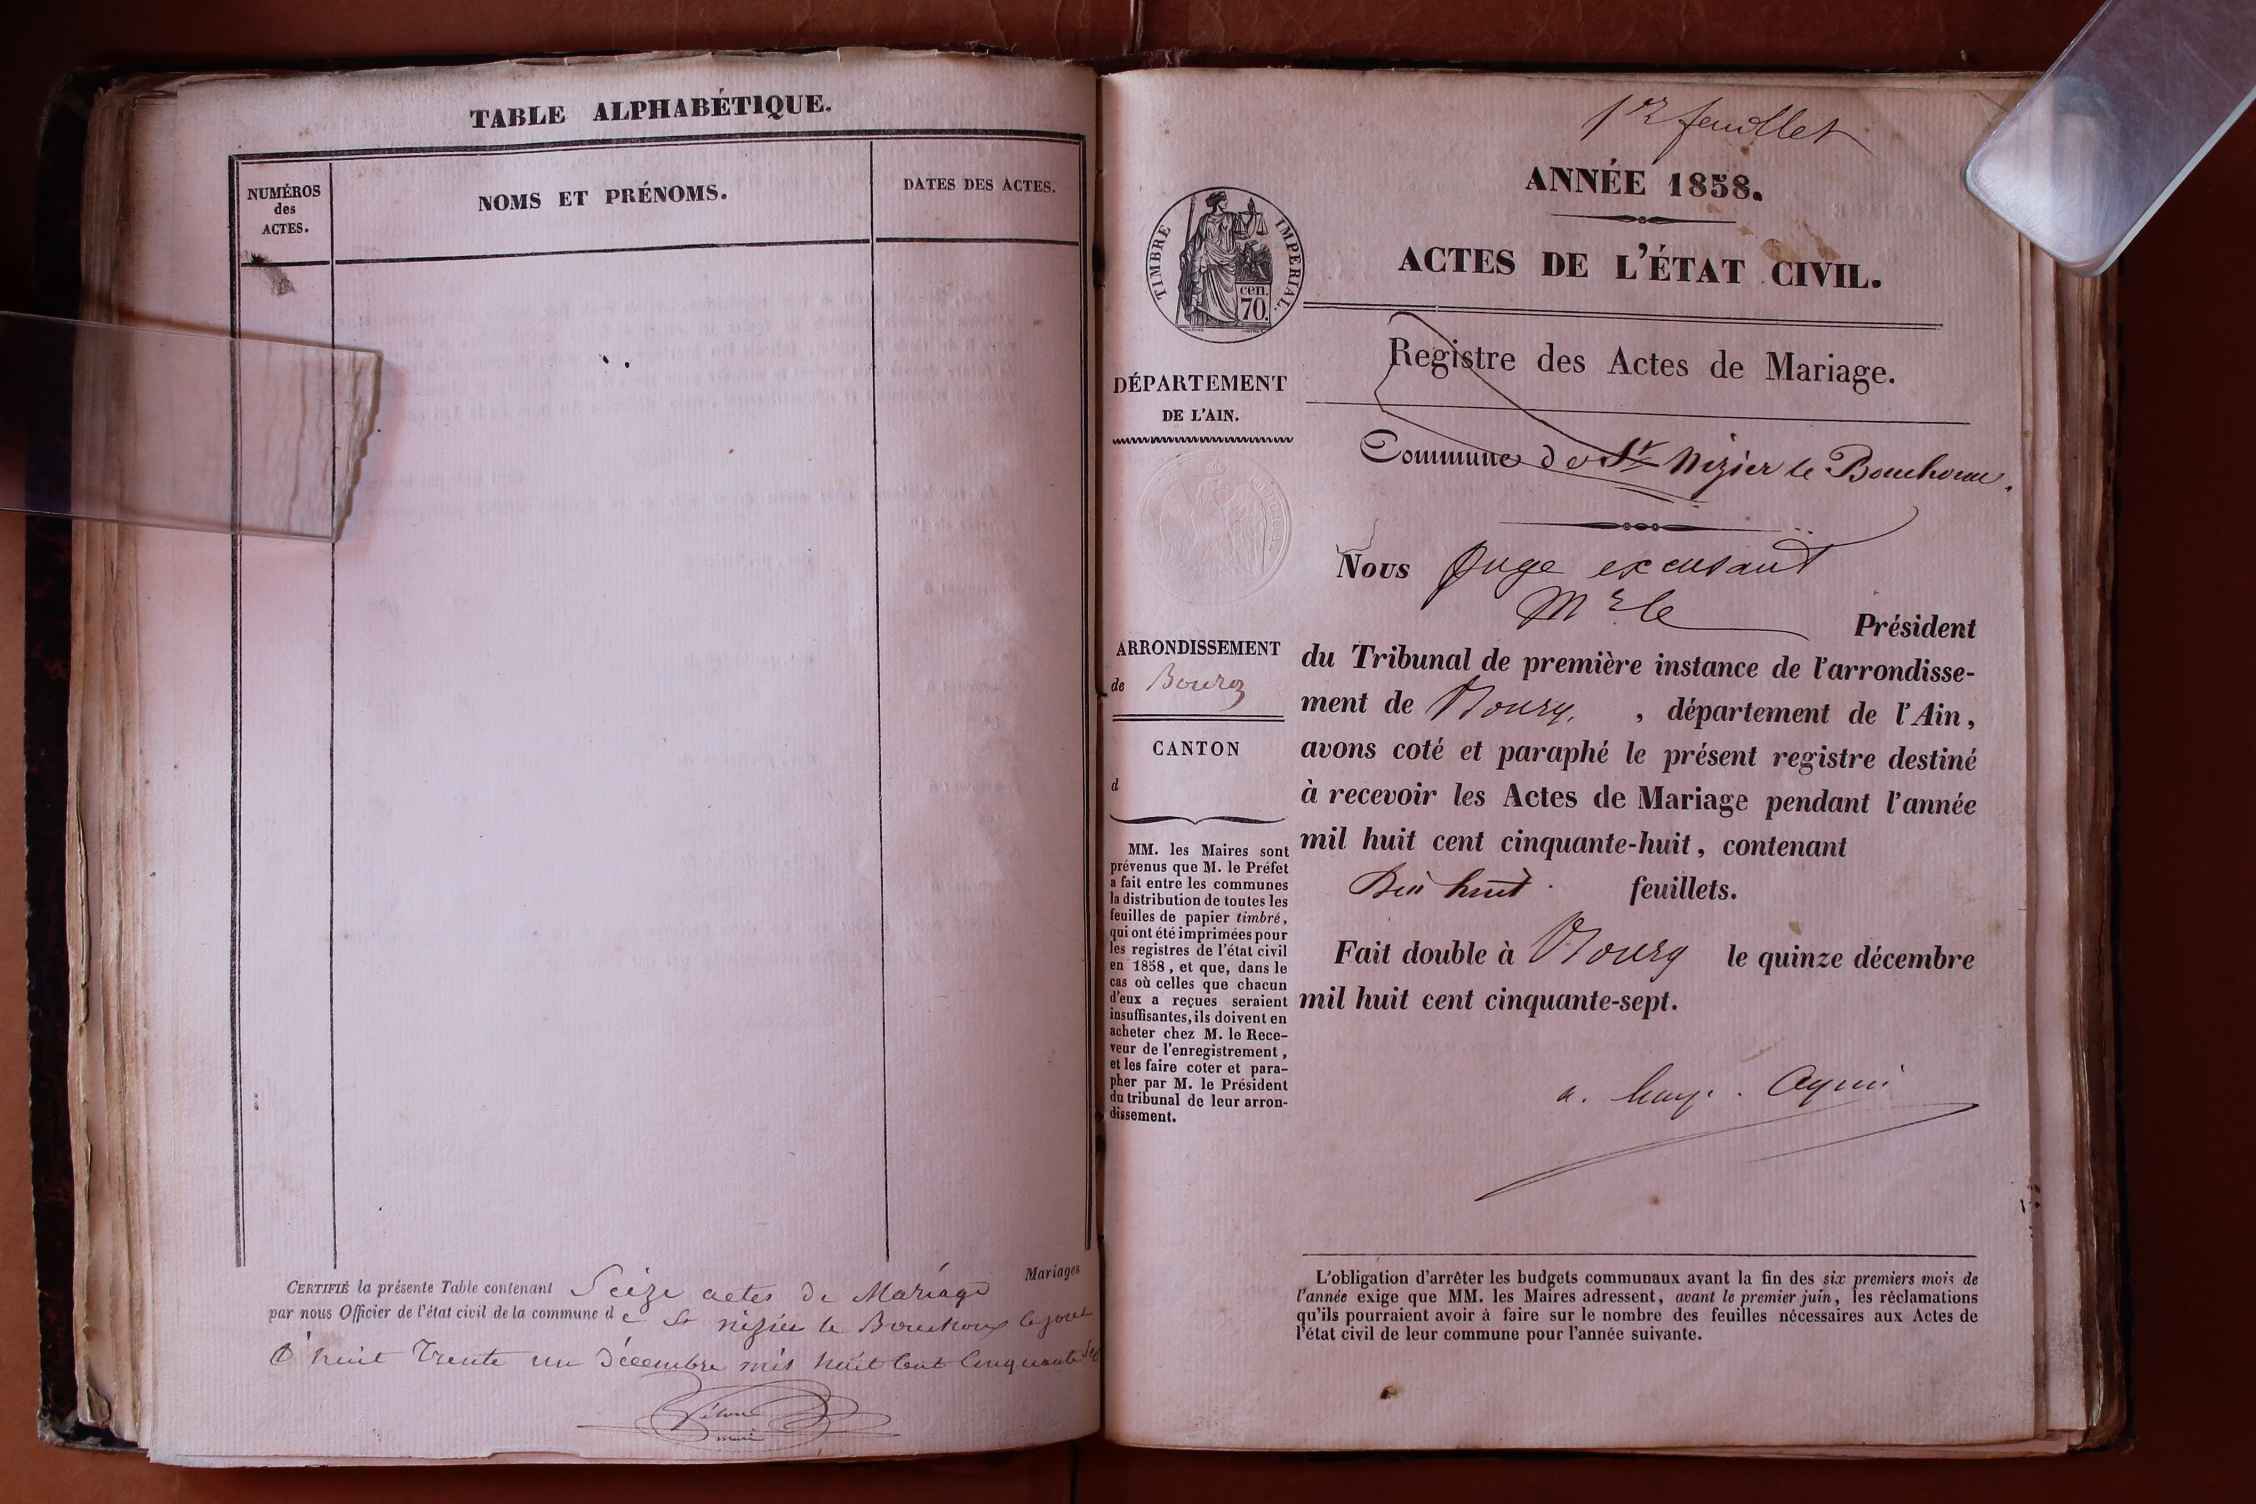 TABLE ALPHABÉTIQUE.
NUMÉROS
des
ACTES.
NOMS ET PRÉNOMS.
DATES DES ACTES.
CERTIFIÉ la présente Table contenant Seize actes de Mariage Mariages
par nous Officier de l'état civil de la commune de St nizier le Bouchoux le jourd
huit Trente un Décembre mil huit Cent Cinquante
1er feuillet
ANNÉE 1858.
ACTES DE L'ÉTAT CIVIL.
TIMBRE IMPERIAL.
cen.
70.
Registre des Actes de Mariage.
DÉPARTEMENT
DE L'AIN.
Commune de St Nizier le Bouchoux.
Nous Juge excusant
Mr le
Président
ARRONDISSEMENT
de Bourg
CANTON
d
MM. les Maires sont
prévenus que M. le Préfet
a fait entre les communes
la distribution de toutes les
feuilles de papier timbré,
qui ont été imprimées pour
les registres de l'état civil
en 1858, et que, dans le
cas où celles que chacun
d'eux a reçues seraient
insuffisantes, ils doivent en
acheter chez M. le Rece-
veur de l'enregistrement,
et les faire coter et para-
pher par M. le Président
du tribunal de leur arron-
dissement.
du Tribunal de première instance de l'arrondisse-
ment de Bourg, , département de l'Ain,
avons coté et paraphé le présent registre destiné
à recevoir les Actes de Mariage pendant l'année
mil huit cent cinquante-huit, contenant
Dix huit feuillets.
Fait double à Bourg le quinze décembre
mil huit cent cinquante-sept.
L'obligation d'arrêter les budgets communaux avant la fin des six premiers mois de
l'année exige que MM. les Maires adressent, avant le premier juin, les réclamations
qu'ils pourraient avoir à faire sur le nombre des feuilles nécessaires aux Actes de
l'état civil de leur commune pour l'année suivante.